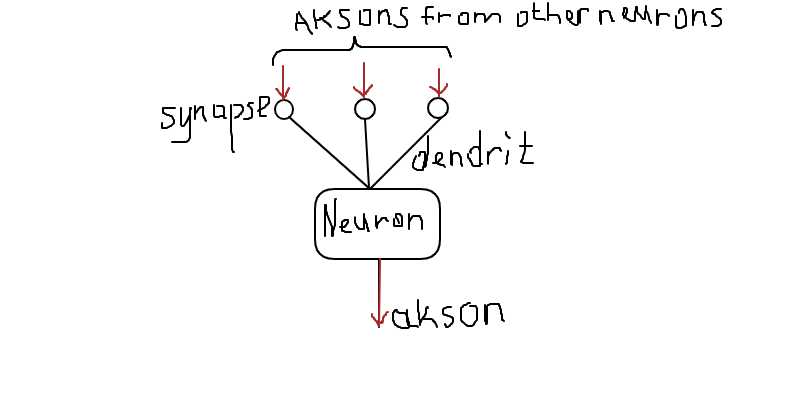 AKSONS from other neurons
synapse
dendrit
Neuron
akson